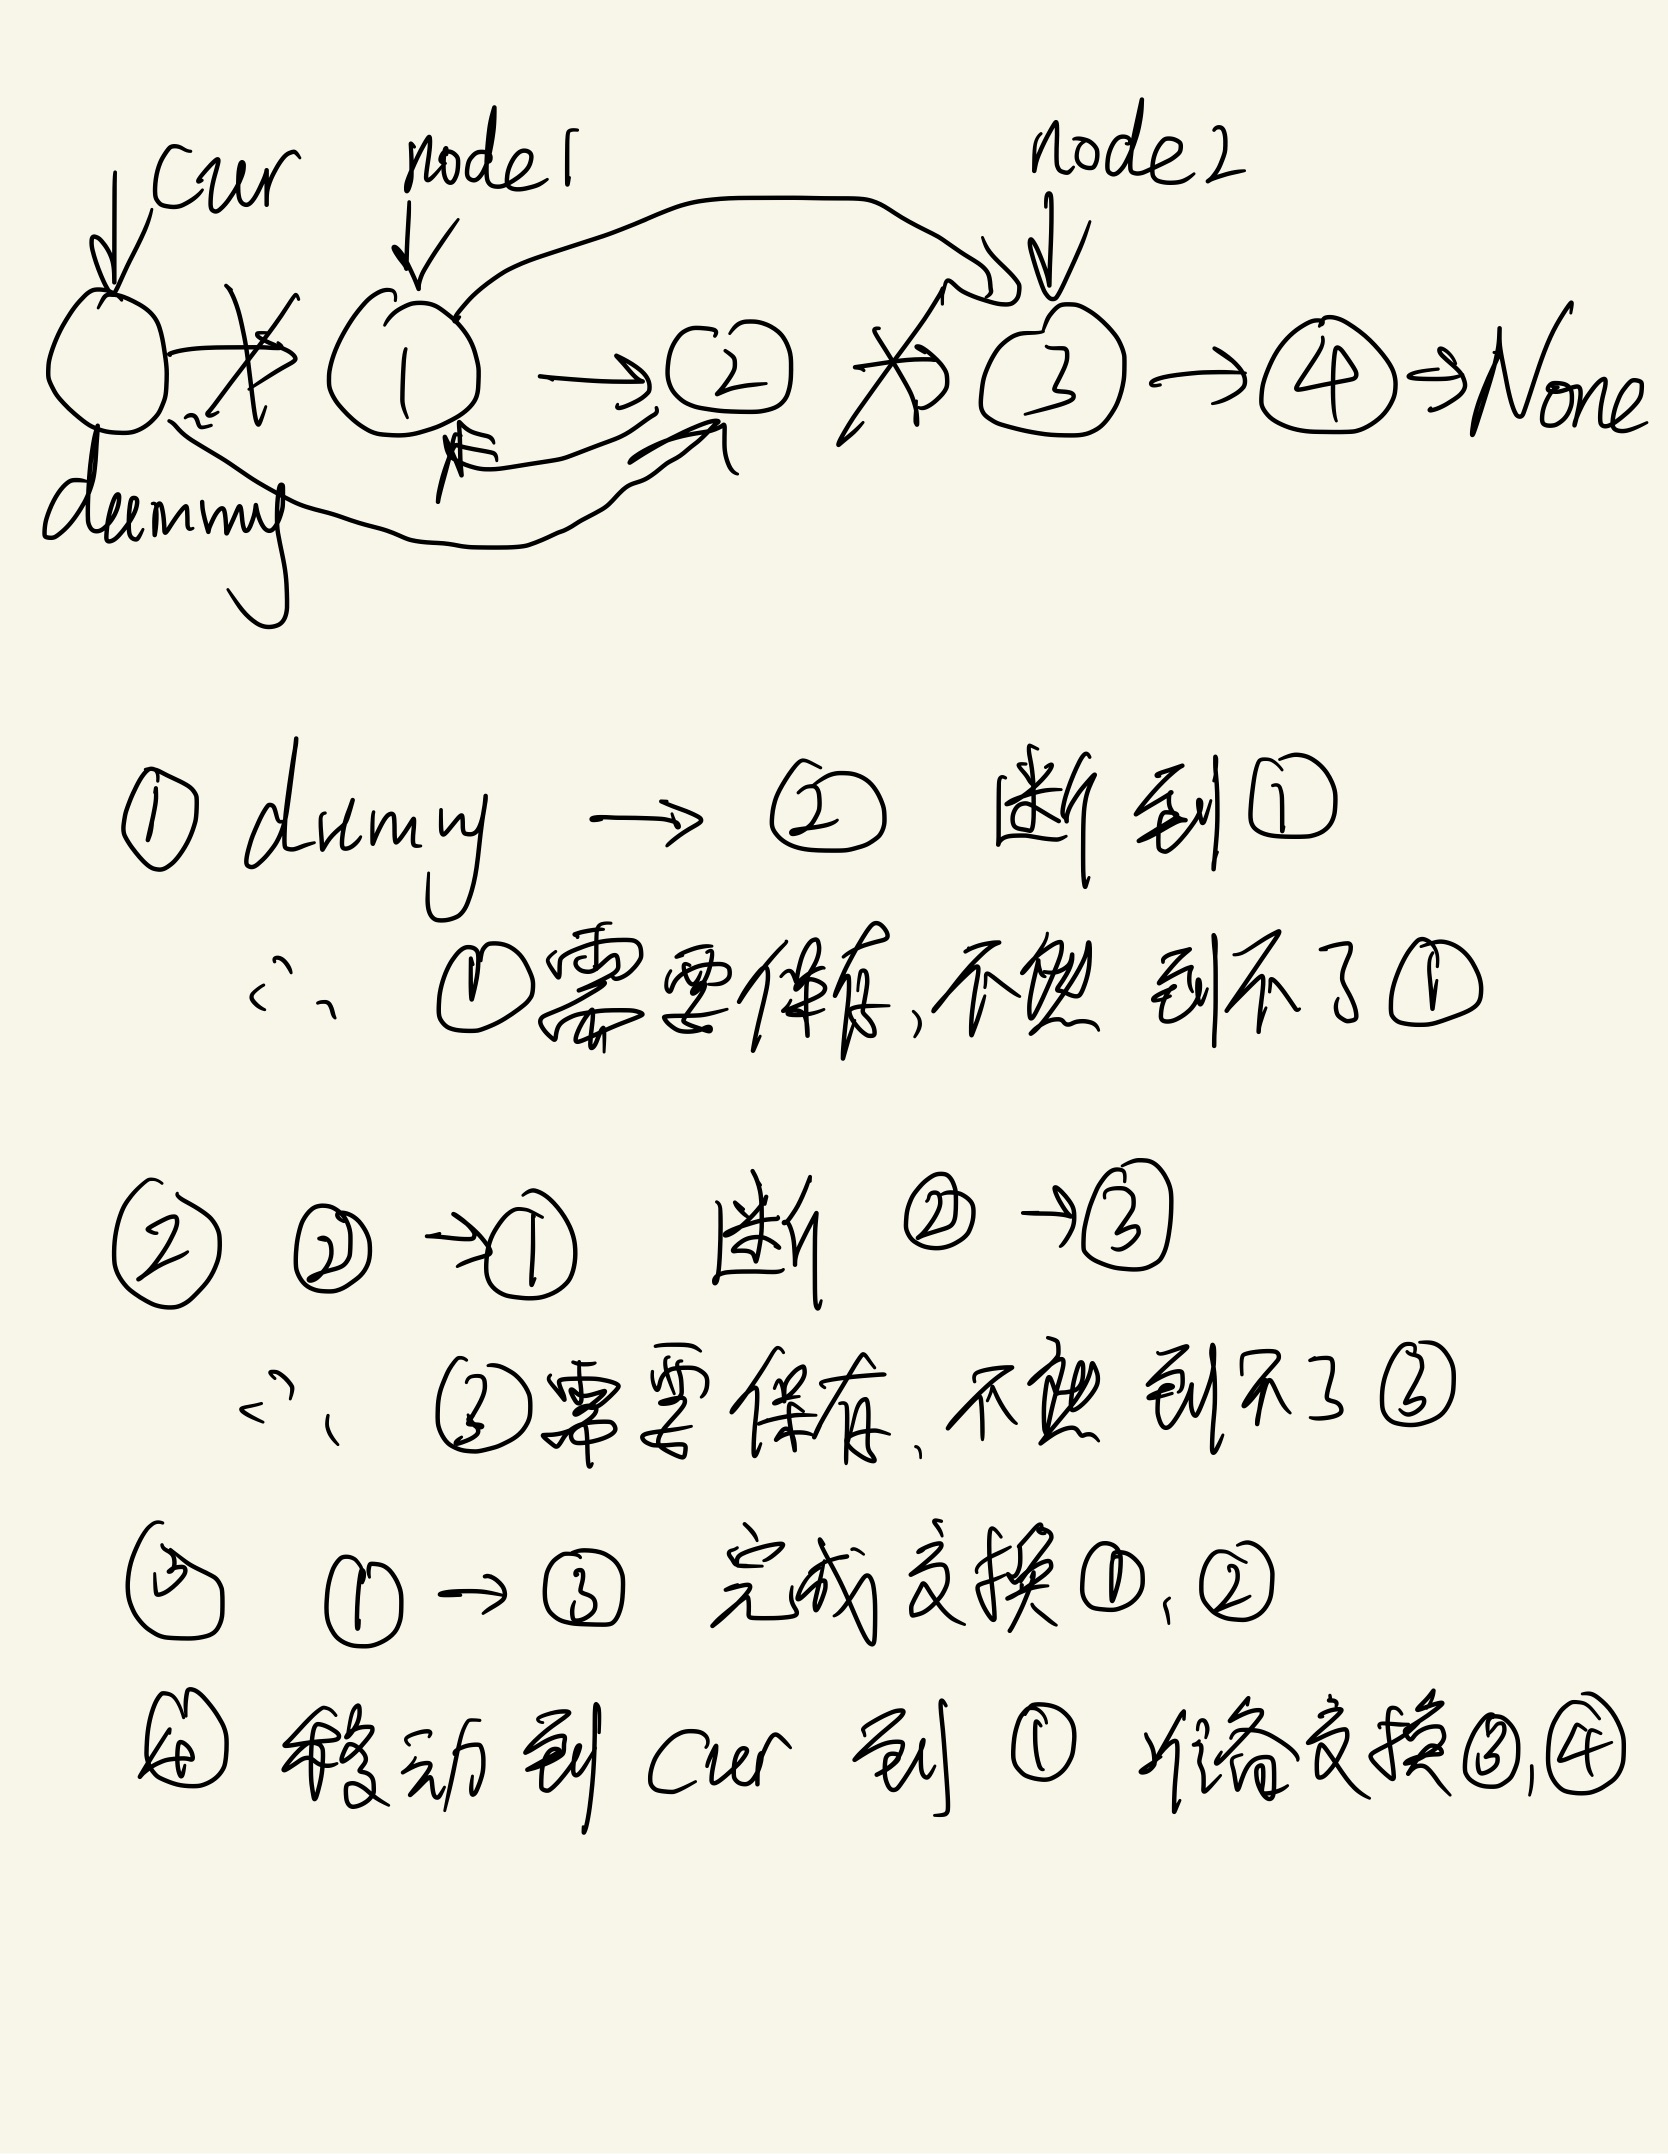 cur node1 node2
1 2 3 4 None
dummy
① dumy → ② 断到①
∴ ①需要保存,不然到不了①
② ②→① 断 ②→③
∴ ③需要保存,不然到不了③
③ ①→③ 完成交换①,②
④ 移动到cur到① 准备交换③,④